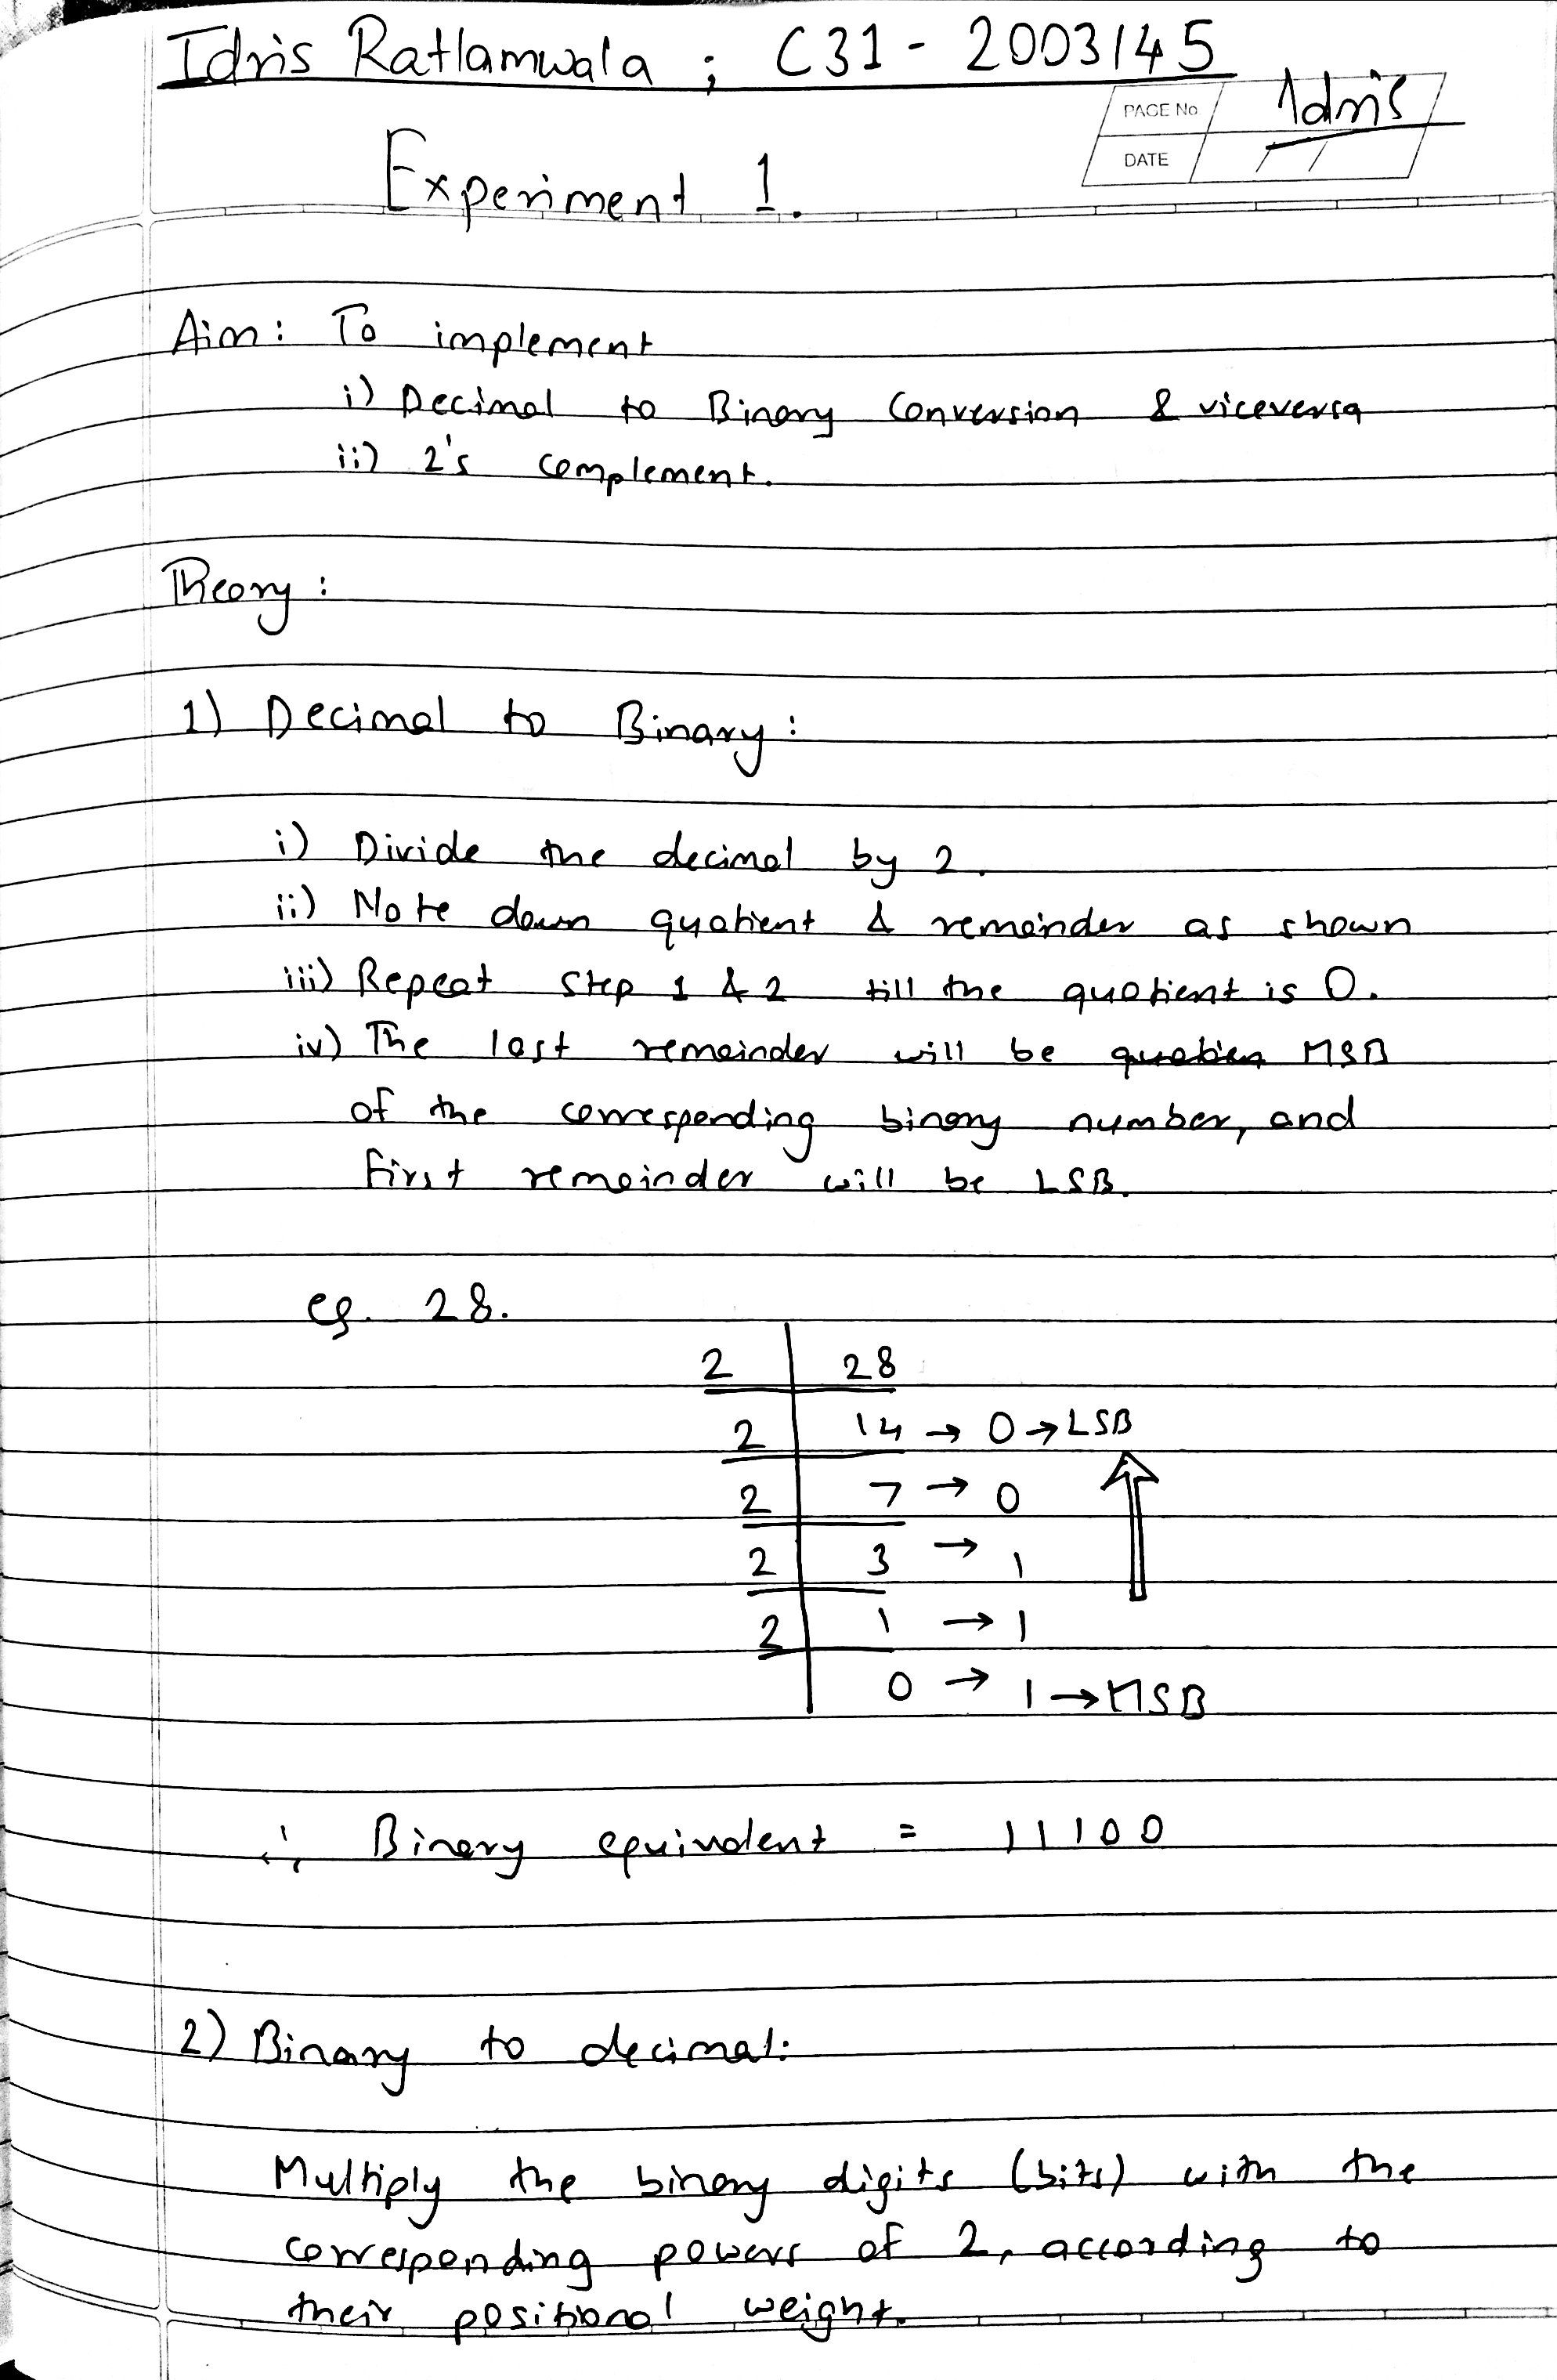 Idris Ratlamwala ; C31 - 2003145
PAGE No
Idris
DATE / /
Experiment 1.
Aim: To implement
i) Decimal to Binary Conversion & viceversa
ii) 2's complement.
Theory:
1) Decimal to Binary:
i) Divide the decimal by 2.
ii) Note down quotient & remainder as shown
iii) Repeat step 1 & 2 till the quotient is 0.
iv) The last remainder will be MSB
of the corresponding binary number, and
first remainder will be LSB.
eg. 28.
2 | 28
2 | 14 → 0 → LSB
2 | 7 → 0
2 | 3 → 1
2 | 1 → 1
0 → 1 → MSB
∴ Binary equivalent = 11100
2) Binary to decimal:
Multiply the binary digits (bits) with the
corresponding powers of 2, according to
their positional weight.